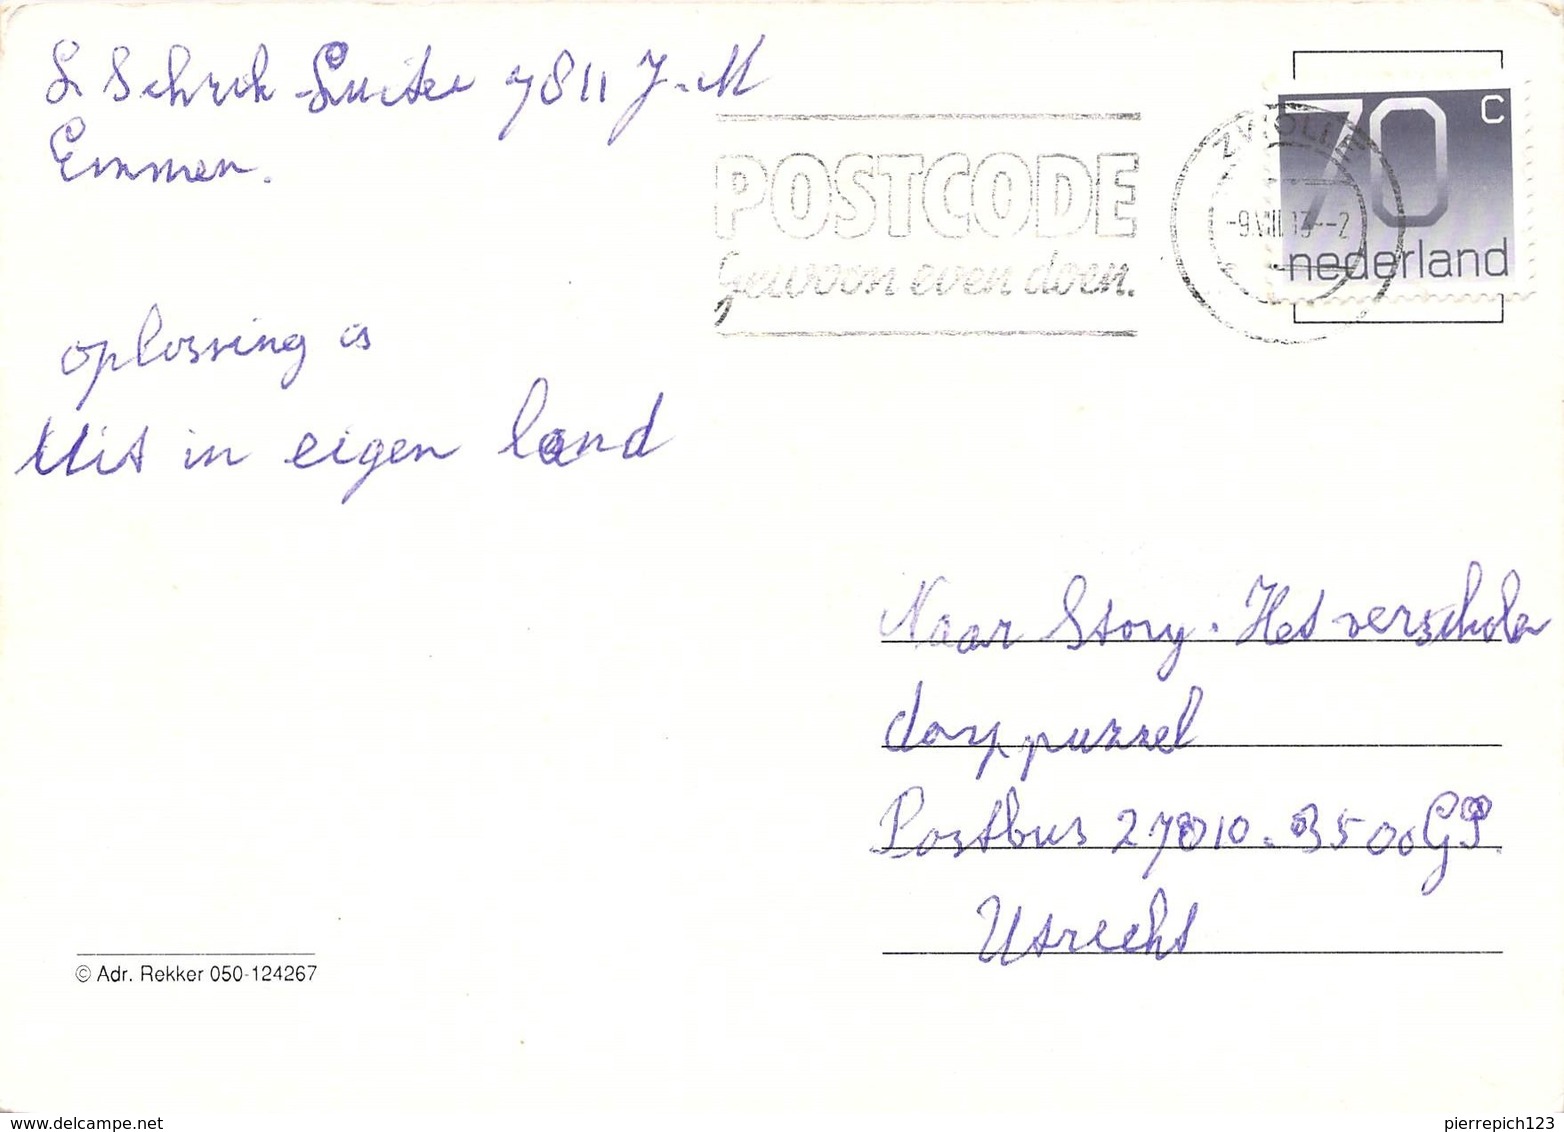 S Schrik-Luitee 7811 J-M
Emmen.
POSTCODE
Gewoon even doen.
ZWOLLE
-9.VIII.93--2
70 C
nederland
oplossing is
Uit in eigen land
Naar Story. Het verscholen
dorp puzzel
Postbus 27010. 3500 GP.
Utrecht
© Adr. Rekker 050-124267
www.delcampe.net
pierrepich123